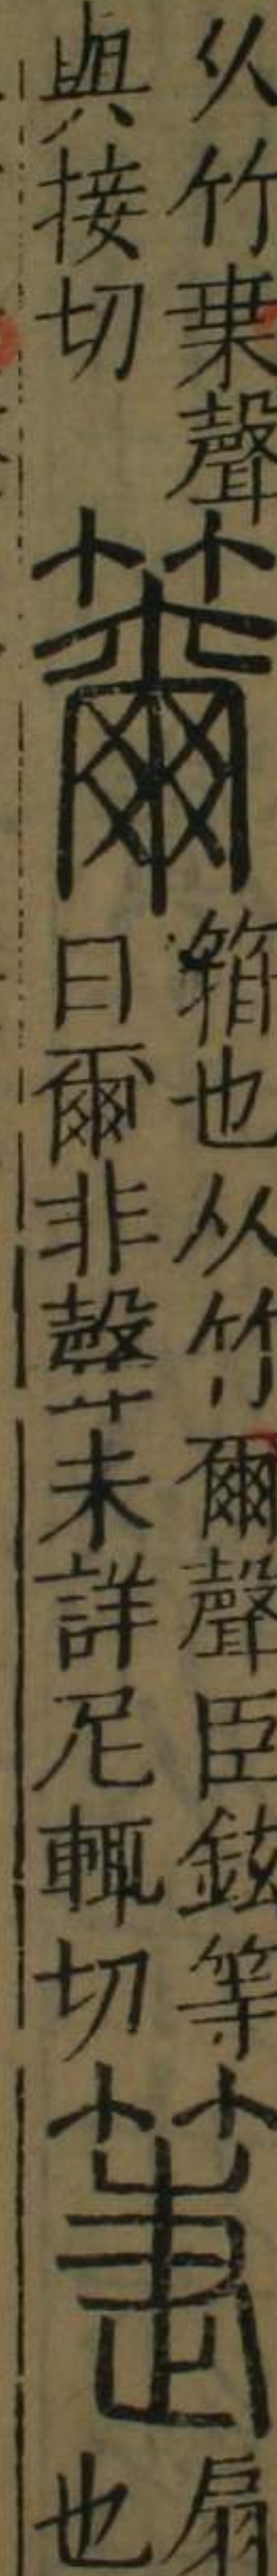 从竹枼聲
與接切
籋
箝也从竹爾聲臣鉉等
曰爾非聲未詳尼輒切
箑
扇
也